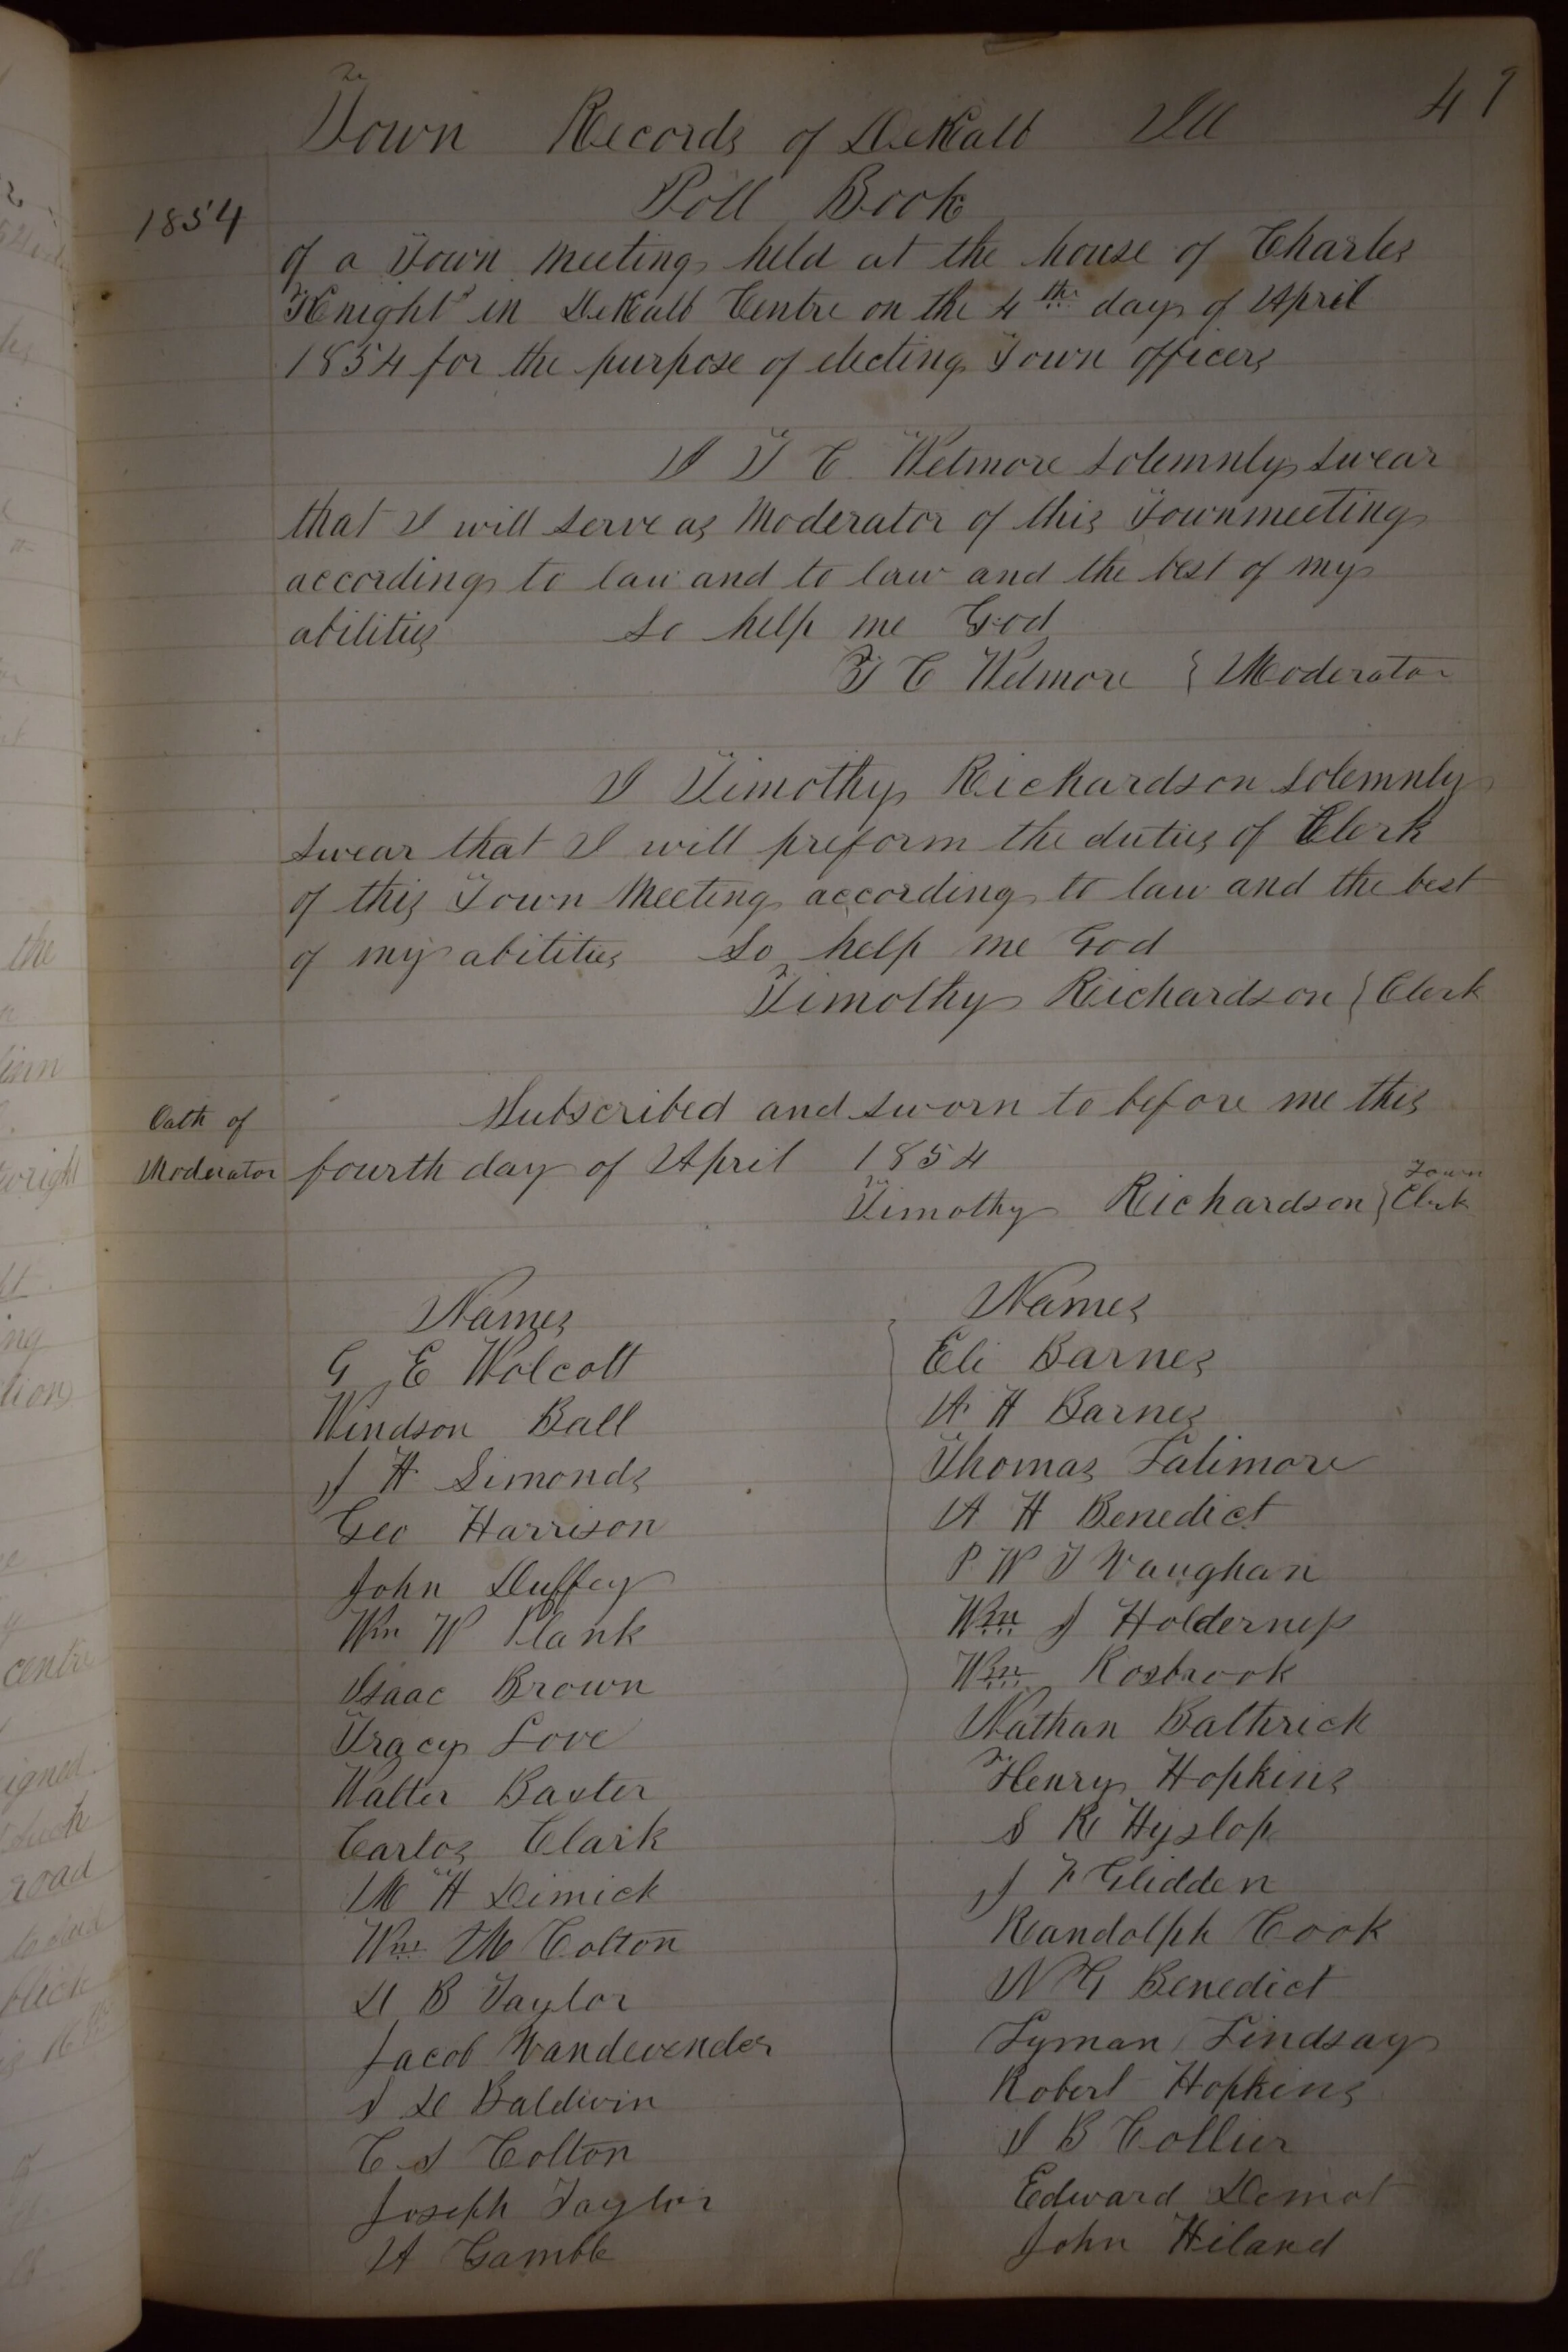 Town Records of DeKalb Ill 49
Poll Book
1854
of a Town Meeting held at the house of Charles
Knight in DeKalb Centre on the 4th day of April
1854 for the purpose of electing Town officers
I T C Wetmore Solemnly Swear
that I will serve as Moderator of this Townmeeting
according to law and to law and the best of my
abilities So help me God
T C Wetmore { Moderator
I Timothy Richardson Solemnly
swear that I will preform the duties of Clerk
of this Town Meeting according to law and the best
of my abilities So help me God
Timothy Richardson { Clerk
Subscribed and sworn to before me this
Oath of
Moderator fourth day of April 1854
Timothy Richardson } Town Clerk
Names
G E Wolcott
Windson Ball
J H Simonds
Geo Harrison
John Duffey
Wm W Plank
Isaac Brown
Tracy Love
Walter Baxter
Carlos Clark
M H Dimick
Wm M Colton
D B Taylor
Jacob Vandevender
I D Baldwin
C S Colton
Joseph Taylor
A Gamble
Names
Eli Barnes
A H Barnes
Thomas Latimore
A H Benedict
P W T Vaughan
Wm J Holderness
Wm Rosbrook
Nathan Bathrick
Henry Hopkins
S R Hyslop
J F Glidden
Randolph Cook
N G Benedict
Lyman Lindsay
Robert Hopkins
I B Collier
Edward Demot
John Hiland